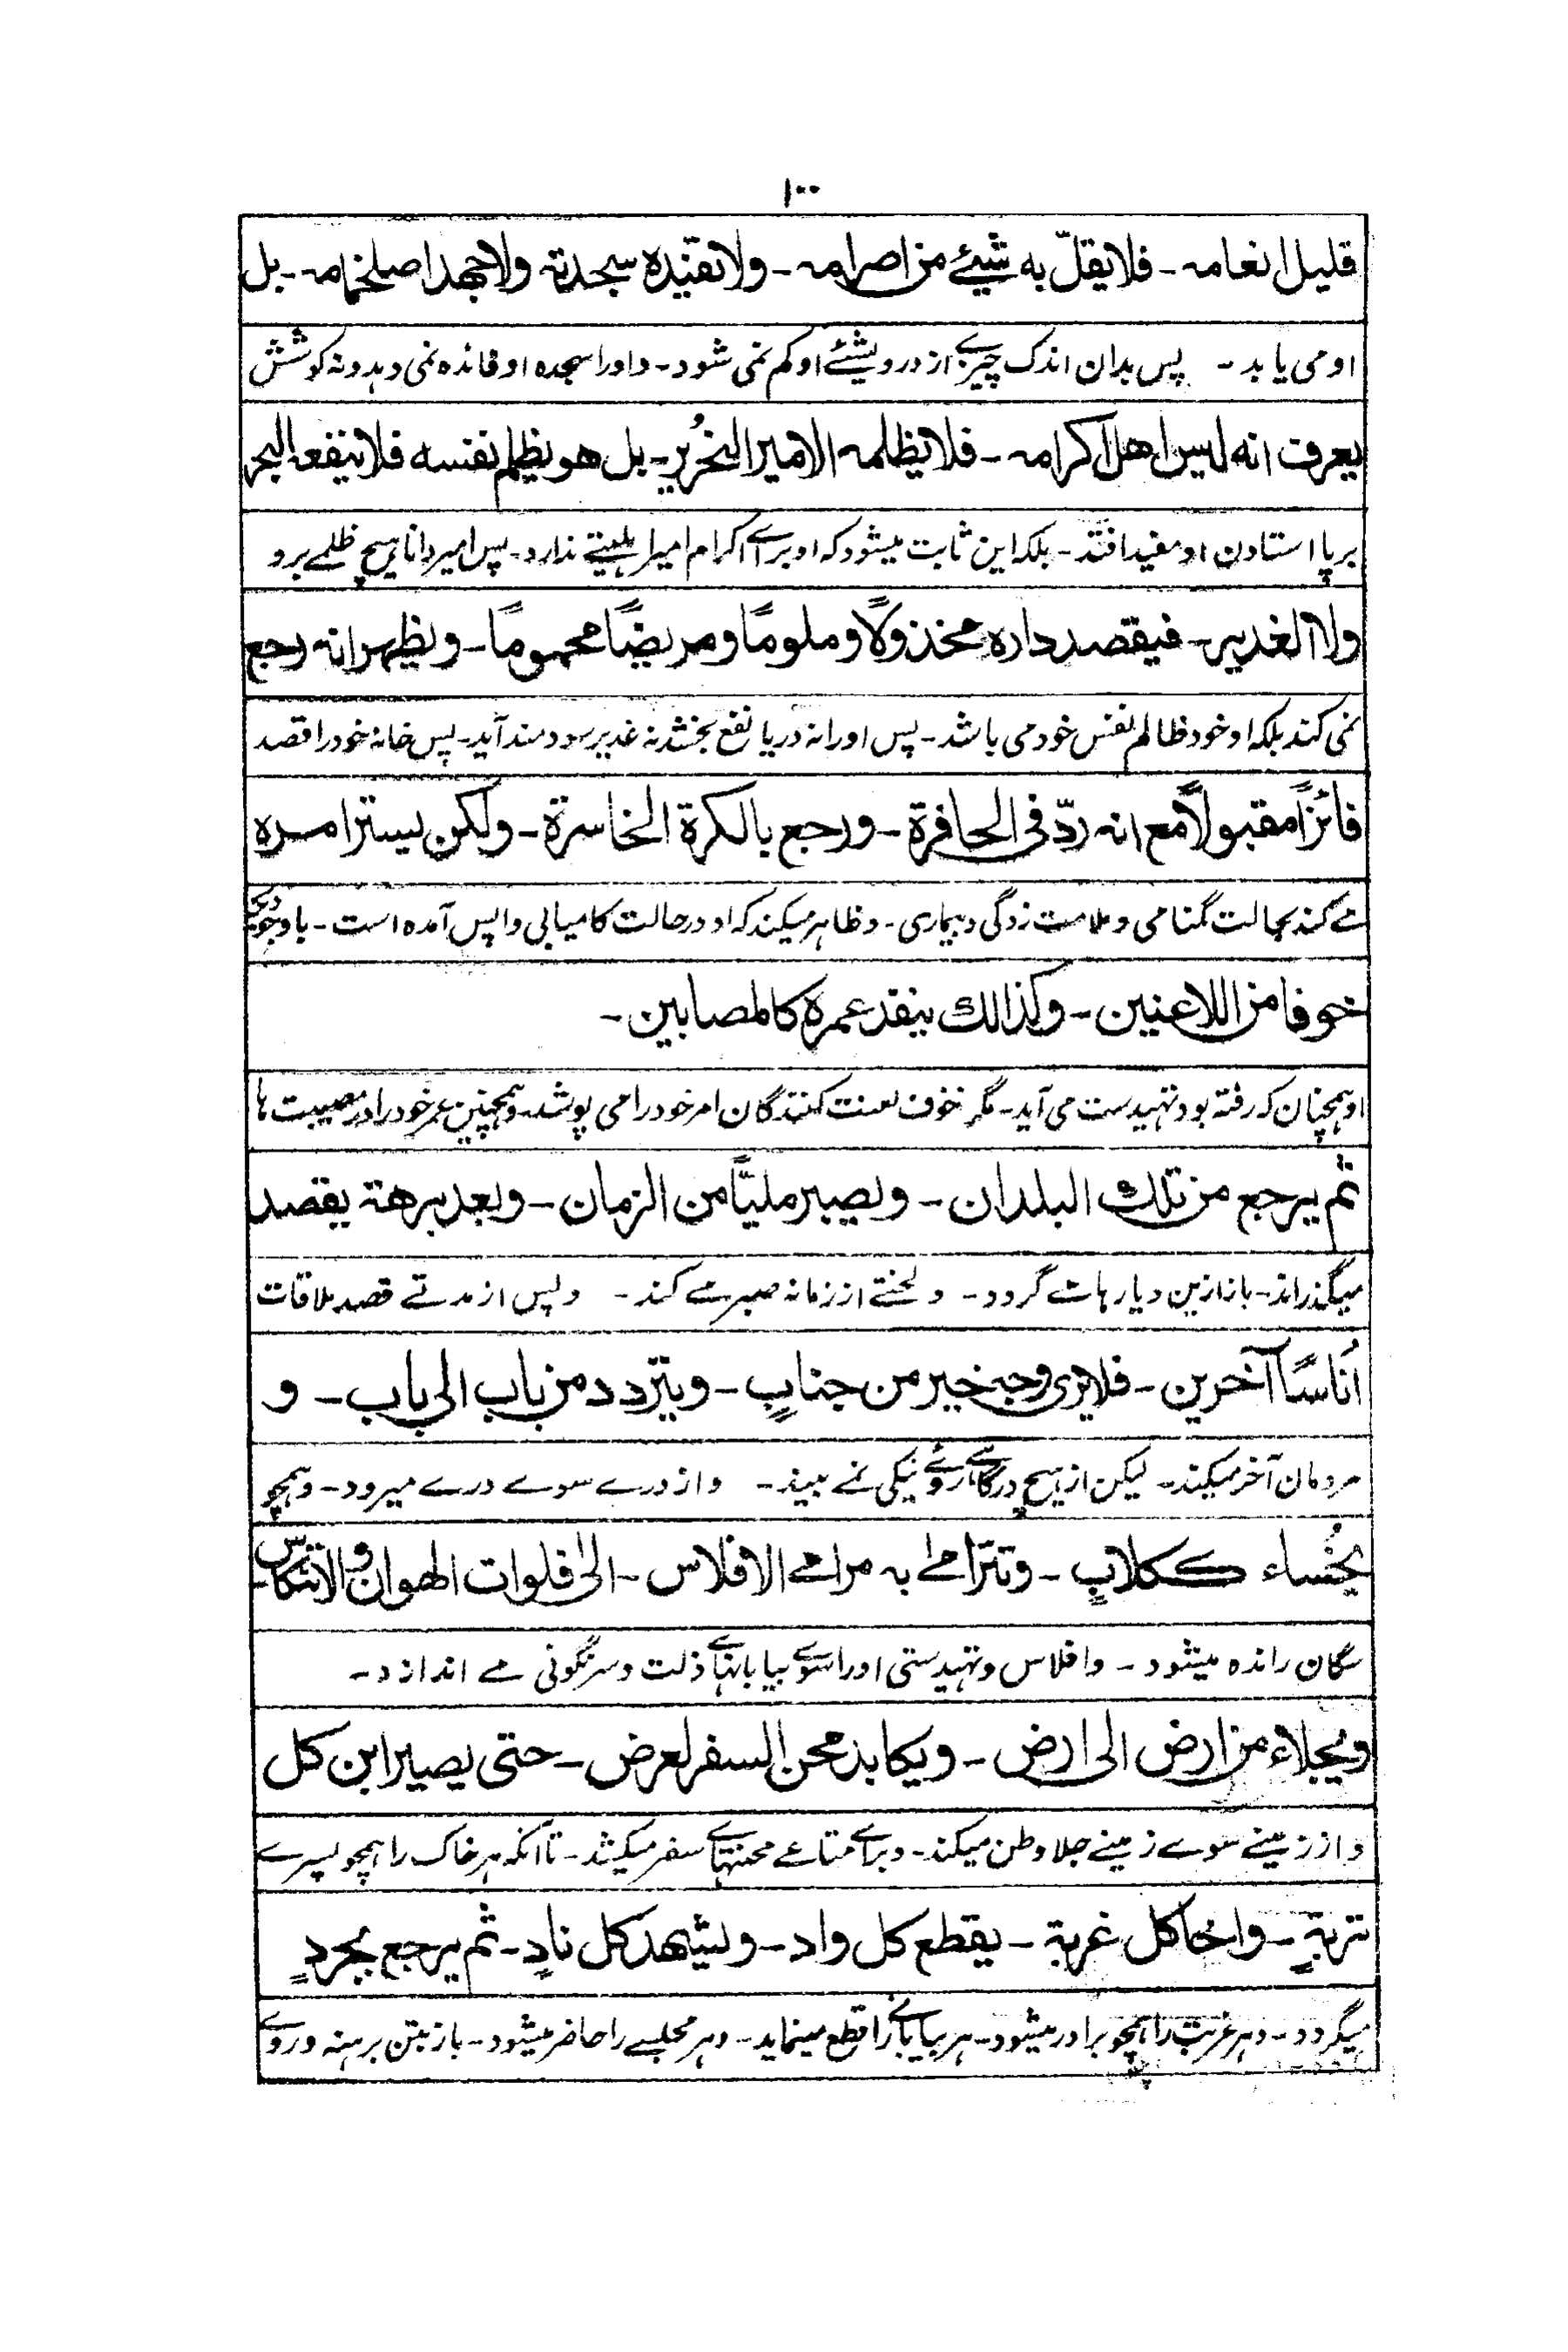 ۱۰۰
قليل انعامه ـ فلا يقلّ به شيئے من اصرامه ـ ولا تفيّده سجدته ولا جهد اصلخمامه ـ بل
او می یابد ـ پس بدان اندک چیزے از درویشئے او کم نمی شود ـ و او را سجده او فائده نمی دهد و نه کوشش
يعرف انه ليس اهل اكرامه ـ فلا يظلمه الامير النخرير ـ بل هو يظلم نفسه فلا ينفعه البحر
برپا استادن او مفید افتد ـ بلکه این ثابت میشود که او برائے اکرام امیر اهلیتے ندارد ـ پس امیر دانا هیچ ظلمے برو
ولا الغدير ـ فيقصد داره مخذولًا وملومًا ومريضًا محمومًا ـ ويظهر انه رجع
نمی کند بلکه او خود ظالم نفس خود می باشد ـ پس او را نه دریا نفع بخشد نه غدیر سودمند آید ـ پس خانه خود را قصد
فائزًا مقبولًا مع انه ردّ فى الحافرة ـ ورجع بالكرة الخاسرة ـ ولكن يستر امره
مے کند بحالت گمنامی و ملامت زدگی و بیماری ـ و ظاهر میکند که او در حالت کامیابی واپس آمده است ـ باوجودیکه
خوفا من اللاعنين ـ وكذالك ينقد عمره كالمصابين ـ
او همچنان که رفته بود تهیدست می آید ـ مگر خوف لعنت کنندگان امر خود را می پوشد ـ و همچنین عمر خود را در مصیبت ها
ثم يرجع من تلك البلدان ـ ويصبر مليًّا من الزمان ـ وبعد برهة يقصد
میگذراند ـ باز ازین دیارها مے گردد ـ و لختے از زمانه صبر مے کند ـ و پس از مدتے قصد ملاقات
اُناسًا آخرين ـ فلا يرى وجه خير من جنابٍ ـ ويتردد من باب الى باب ـ و
مردمان آخر میکند ـ لیکن از هیچ درگاهے روئے نیکی نمے بیند ـ و از درے سوے درے میرود ـ و همچو
يُخساء ككلابٍ ـ وتترامے به مرامے الافلاس ـ الى فلوات الهوان والانتكاس ـ
سگان رانده میشود ـ و افلاس و تهیدستی او را سوئے بیابانهائے ذلت و سرنگونی مے اندازد ـ
ويجلاء من ارض الى ارض ـ ويكابد محن السفر لعرض ـ حتى يصير ابن كل
و از زمینے سوے زمینے جلا وطن میکند ـ و برائے متاعے محنتهائے سفر میکشد ـ تا آنکه هر خاک را همچو پسرے
تربةٍ ـ واخا كل غربة ـ يقطع كل واد ـ ويشهد كل نادٍ ـ ثم يرجع بجردٍ
میگردد ـ و هر غربت را همچو برادر میشود ـ هر بیابانے را قطع مینماید ـ و هر مجلسے را حاضر میشود ـ باز بتن برهنه و روے